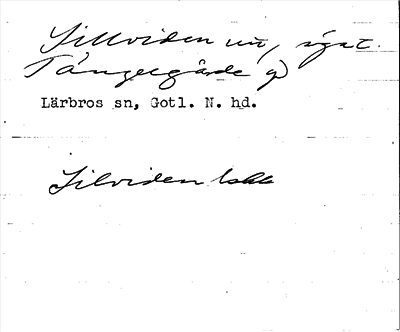 Sillviden nu, ägat.
Tängelgårde g
Lärbros sn, Gotl. N. hd.
Silviden